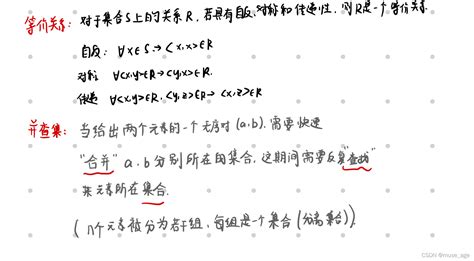 等价关系: 对于集合S上的关系R, 若具有自反、对称和传递性, 则R是一个等价关系.
自反: ∀x∈S → <x,x>∈R
对称 ∀<x,y>∈R → <y,x>∈R.
传递 ∀<x,y>∈R, <y,z>∈R → <x,z>∈R
并查集: 当给出两个元素的一个无序对 (a,b). 需要快速
"合并" a.b分别所在的集合. 这期间需要反复"查找"
某元素所在集合.
(n个元素被分为若干组, 每组是一个集合 (分离集合)).
CSDN @muse_age